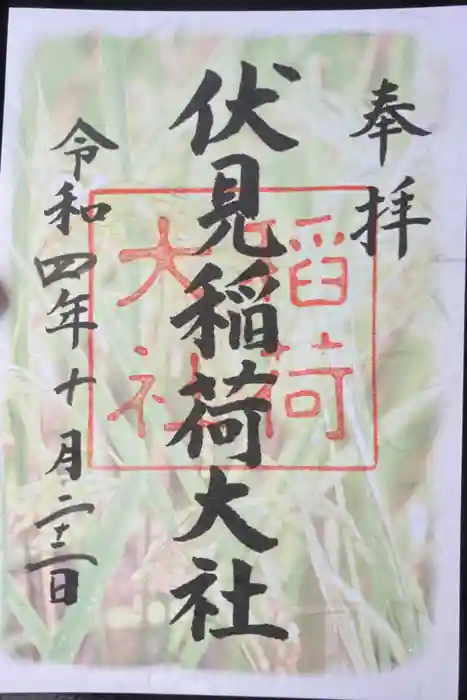 奉拝
伏見稲荷大社
稲荷
大社
令和四年十月二十二日